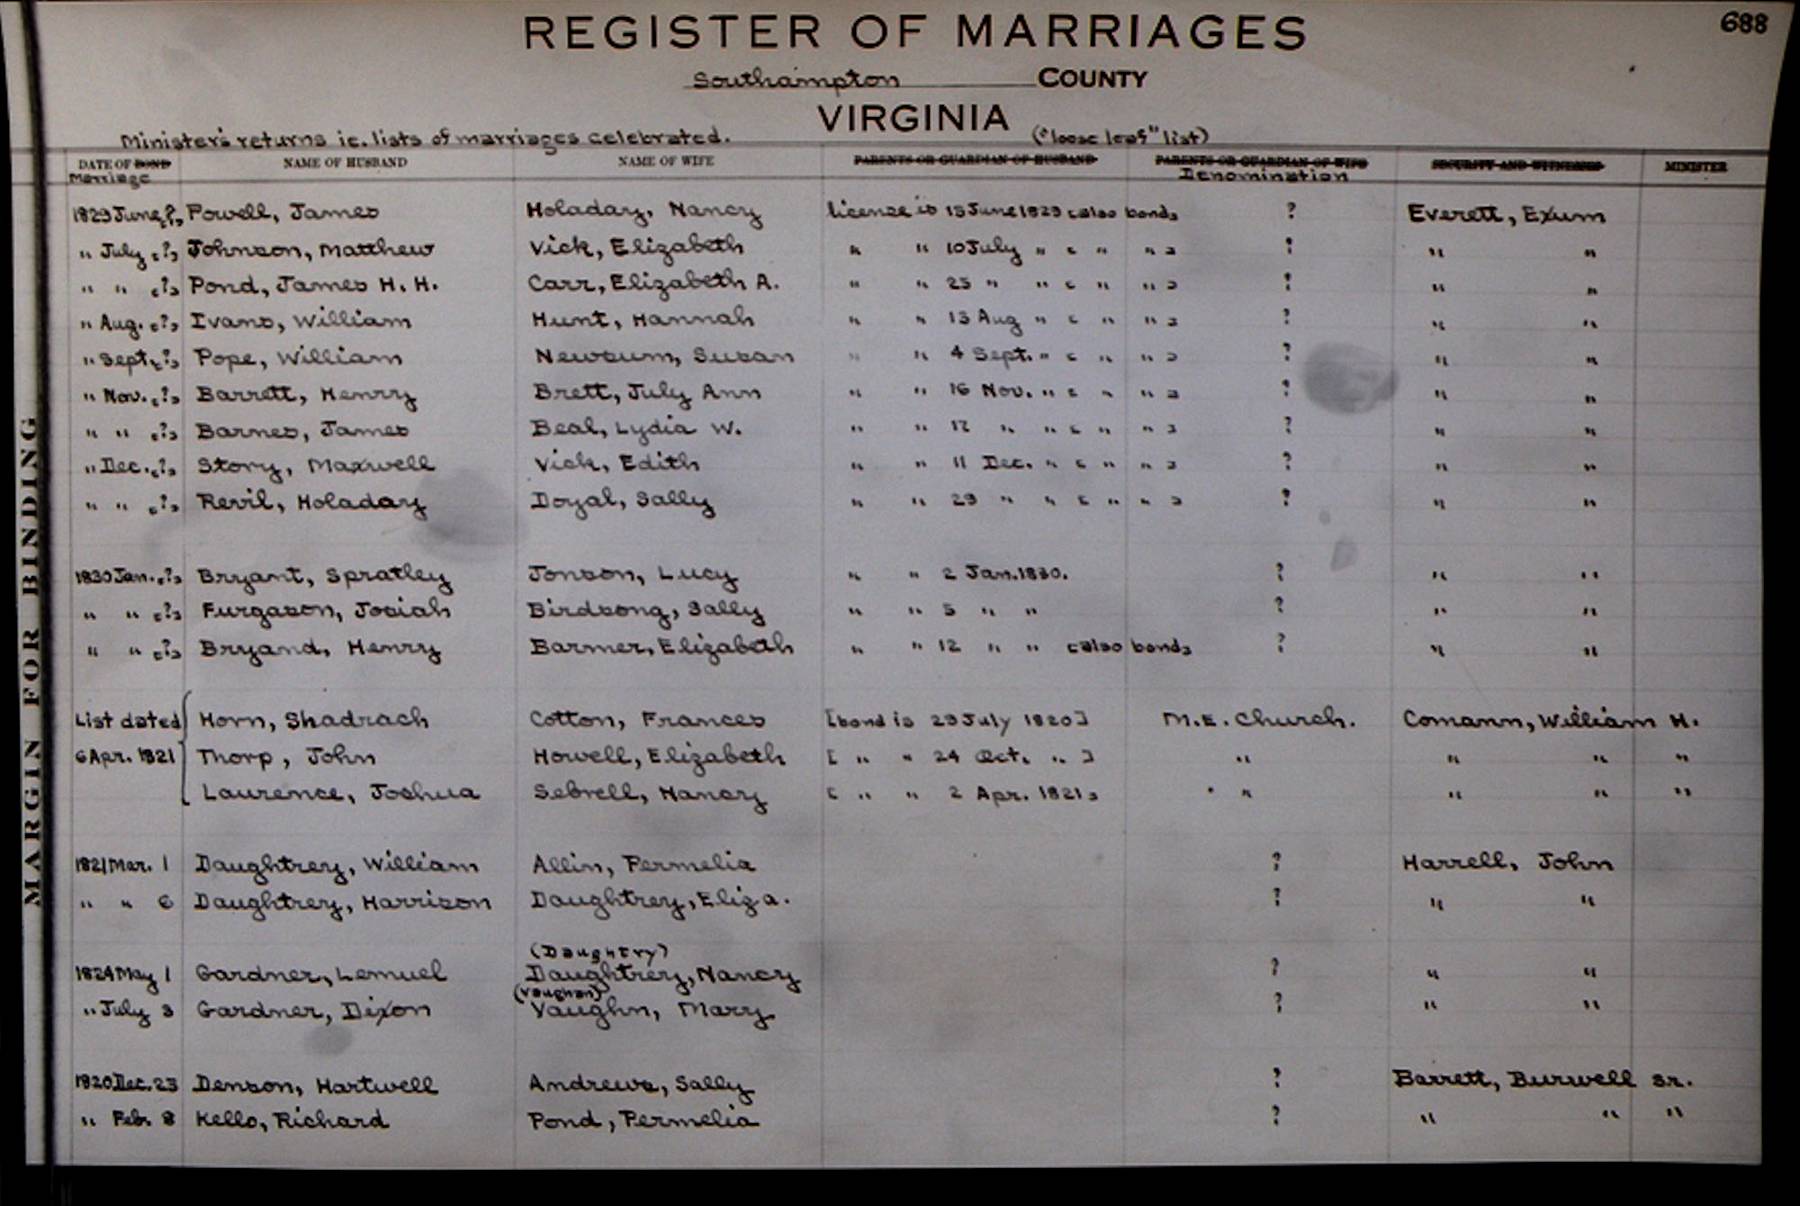 688
REGISTER OF MARRIAGES
Southampton COUNTY
VIRGINIA
Minister's returns ie. lists of marriages celebrated. ("loose leaf" list)
DATE OF BOND NAME OF HUSBAND NAME OF WIFE PARENTS OR GUARDIAN OF HUSBAND PARENTS OR GUARDIAN OF WIFE SECURITY AND WITNESSES MINISTER
Marriage Denomination
1829 June [?] Powell, James Holaday, Nancy license is 15 June 1829 [also bond] ? Everett, Exum
" July [?] Johnson, Matthew Vick, Elizabeth " " 10 July " [ " " ] ? " "
" " [?] Pond, James H. H. Carr, Elizabeth A. " " 25 " " [ " " ] ? " "
" Aug. [?] Ivans, William Hunt, Hannah " " 13 Aug " [ " " ] ? " "
" Sept. [?] Pope, William Newsum, Susan " " 4 Sept. " [ " " ] ? " "
" Nov. [?] Barrett, Henry Brett, July Ann " " 16 Nov. " [ " " ] ? " "
" " [?] Barnes, James Beal, Lydia W. " " 17 " " [ " " ] ? " "
" Dec. [?] Story, Maxwell Vick, Edith " " 11 Dec. " [ " " ] ? " "
" " [?] Revil, Holaday Doyal, Sally " " 29 " " [ " " ] ? " "
1830 Jan. [?] Bryant, Spratley Jonson, Lucy " " 2 Jan. 1830. ? " "
" " [?] Furgason, Josiah Birdsong, Sally " " 5 " " ? " "
" " [?] Bryand, Henry Barmer, Elizabeth " " 12 " " [also bond] ? " "
List dated Horn, Shadrach Cotton, Frances [bond is 29 July 1820] M.E. Church. Comann, William H.
6 Apr. 1821 Thorp, John Howell, Elizabeth [ " " 24 Oct. " ] " " " "
Laurence, Joshua Sebrell, Nancy [ " " 2 Apr. 1821] " " " " "
1821 Mar. 1 Daughtrey, William Allin, Permelia ? Harrell, John
" " 6 Daughtrey, Harrison Daughtrey, Eliza. ? " "
(Daughtry)
1824 May 1 Gardner, Lemuel Daughtrey, Nancy ? " "
(Vaughan)
" July 3 Gardner, Dixon Vaughn, Mary ? " "
1820 Dec. 23 Denson, Hartwell Andrews, Sally ? Barrett, Burwell sr.
" Feb. 8 Kello, Richard Pond, Permelia ? " " "
MARGIN FOR BINDING